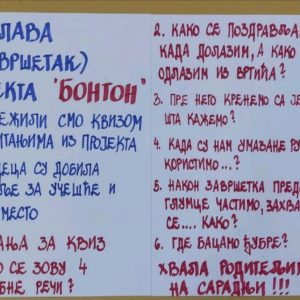 ЛАВА
ВРШЕТАК)
ЕКТА "БОНТОН"
ЕЖИЛИ СМО КВИЗОМ
ИТАЊИМА ИЗ ПРОЈЕКТА
ДЕЦА СУ ДОБИЛА
ЉЕ ЗА УЧЕШЋЕ И
МЕСТО
АЊА ЗА КВИЗ
О СЕ ЗОВУ 4
БНЕ РЕЧИ?
2. КАКО СЕ ПОЗДРАВЉА
КАДА ДОЛАЗИМ, А КАКО
ОДЛАЗИМ ИЗ ВРТИЋА?
3. ПРЕ НЕГО КРЕНЕМО СА ЈЕ
ШТА КАЖЕМО?
4. КАДА СУ НАМ УМАЗАНЕ РУ
КОРИСТИМО...?
5. НАКОН ЗАВРШЕТКА ПРЕД
ГЛУМЦЕ ЧАСТИМО, ЗАХВА
СЕ.... КАКО?
6. ГДЕ БАЦАМО ЂУБРЕ?
ХВАЛА РОДИТЕЉИМ
НА САРАДЊИ!!!